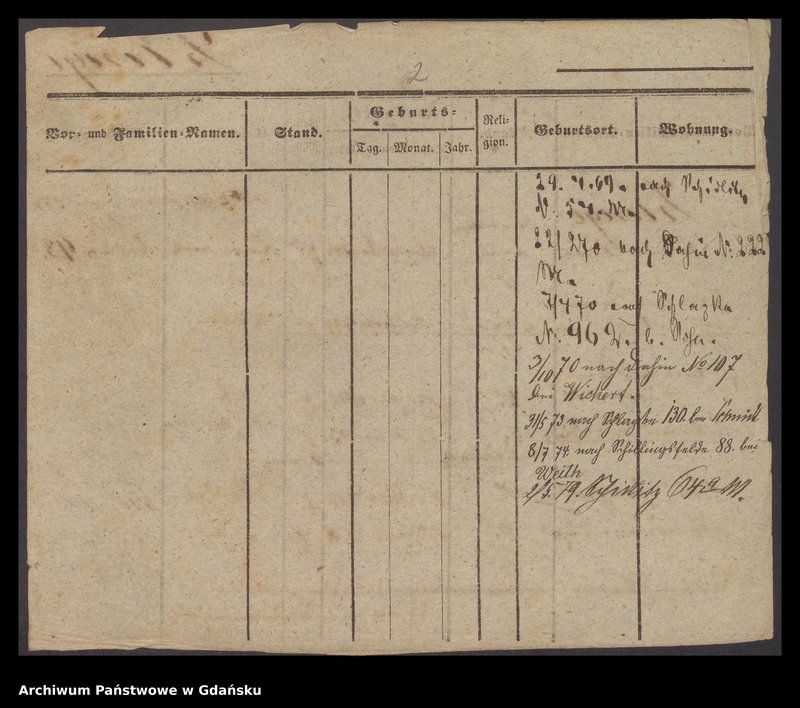 2
Vor- und Familien-Namen.
Stand.
Geburts-
Tag.
Monat.
Jahr.
Reli-
gion.
Geburtsort.
Wohnung.
29. 7. 69. nach Schidlitz
N. 57. M.
22/ 270 nach Dahin No. 222
M.
7/4 70 nach Schlapke
Nr. 96 b.
3/10 70 nach Dahin No 107
bei Wichert.
31/5 73 nach Schlapke 130. bei Schmidt
8/7 74. nach Schillingsfelde 88. bei
Weith
2/5. 79. Schidlitz 64a M.
Archiwum Państwowe w Gdańsku